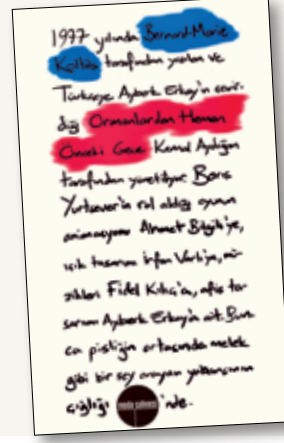 1977 yılında Bernard-Marie
Koltès tarafından yazılan ve
Türkçeye Ayberk Erkay'ın çevir-
diği Ormanlardan Hemen
Önceki Gece Kemal Aydoğan
tarafından yönetiliyor. Barış
Yurtsever'in rol aldığı oyunun
animasyonu Ahmet Bilgili'ye,
ışık tasarımı İrfan Varlı'ya, mü-
zikleri Fidel Kılıç'a, afiş ta-
sarımı Ayberk Erkay'a ait. Bun-
ca pisliğin ortasında melek
gibi bir şey arayan yabancının
çığlığı moda sahnesi 'nde.